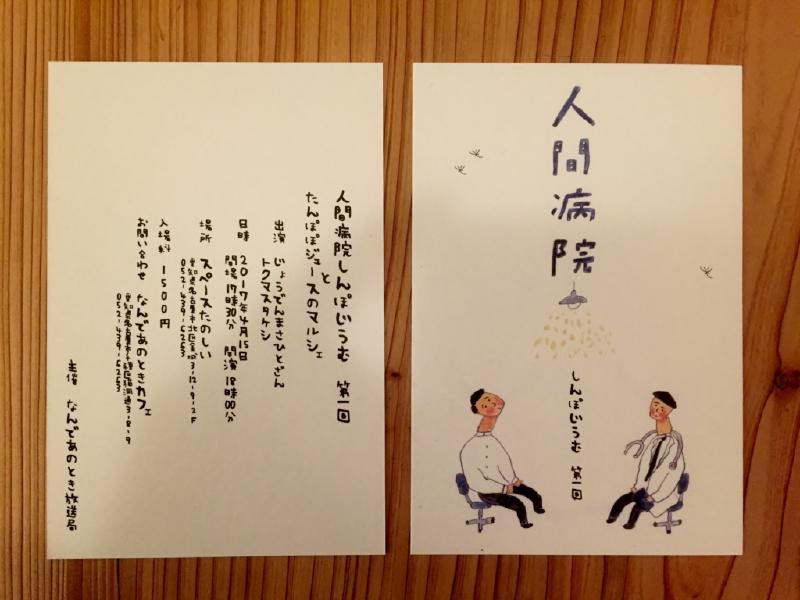 人間病院
しんぽじうむ 第一回
人間病院しんぽじうむ 第一回
と
たんぽぽジュースのマルシェ
出演 じょうでんまさひとざん
トクマスタケシ
日時 2017年4月15日
開場 17時30分 開演 18時00分
場所 スペースたのしい
愛知県名古屋市北区 3-12-9-2F
052-439-6263
入場料 1500円
お問い合わせ なんであのときカフェ
愛知県名古屋市 3-8-9
052-439-6263
主催 なんであのとき放送局